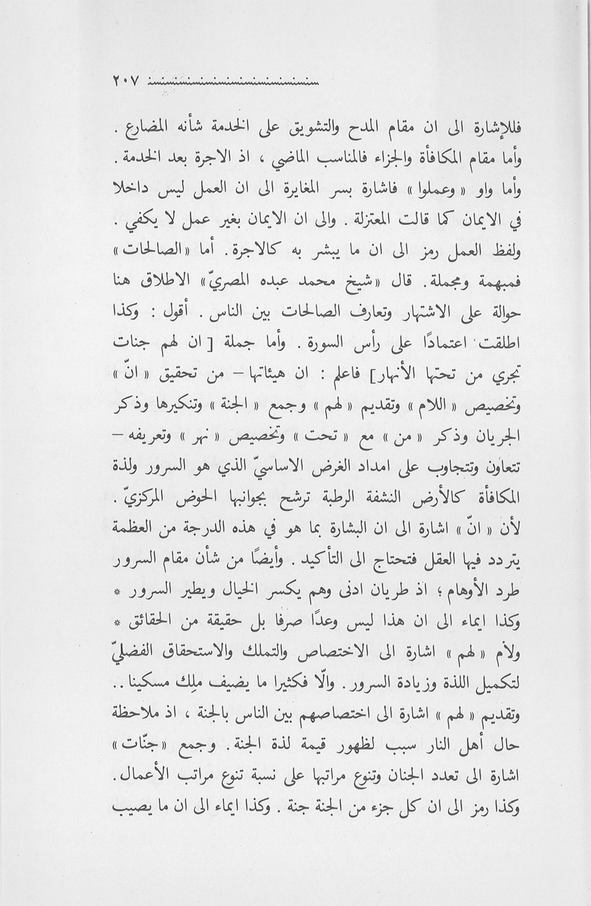 ٢٠٧
فللإشارة الى ان مقام المدح والتشويق على الخدمة شأنه المضارع .
وأما مقام المكافأة والجزاء فالمناسب الماضي ، اذ الاجرة بعد الخدمة .
وأما واو « وعملوا » فاشارة بسر المغايرة الى ان العمل ليس داخلا
في الايمان كما قالت المعتزلة . والى ان الايمان بغير عمل لا يكفي .
ولفظ العمل رمز الى ان ما يبشر به كالاجرة . أما « الصالحات »
فمبهمة ومجملة . قال « شيخ محمد عبده المصريّ » الاطلاق هنا
حوالة على الاشتهار وتعارف الصالحات بين الناس . أقول : وكذا
اطلقت اعتمادًا على رأس السورة . وأما جملة [ ان لهم جنات
تجري من تحتها الأنهار] فاعلم : ان هيئاتها – من تحقيق « انّ »
وتخصيص « اللام » وتقديم « لهم » وجمع « الجنة » وتنكيرها وذكر
الجريان وذكر « من » مع « تحت » وتخصيص « نهر » وتعريفه –
تتعاون وتتجاوب على امداد الغرض الاساسيّ الذي هو السرور ولذة
المكافأة كالأرض النشفة الرطبة ترشح بجوانبها الحوض المركزيّ .
لأن « انّ » اشارة الى ان البشارة بما هو في هذه الدرجة من العظمة
يتردد فيها العقل فتحتاج الى التأكيد . وأيضًا من شأن مقام السرور
طرد الأوهام ؛ اذ طريان ادنى وهم يكسر الخيال ويطير السرور *
وكذا ايماء الى ان هذا ليس وعدًا صرفا بل حقيقة من الحقائق *
ولام « لهم » اشارة الى الاختصاص والتملك والاستحقاق الفضليّ
لتكميل اللذة وزيادة السرور . والّا فكثيرا ما يضيف ملِك مسكينا ..
وتقديم « لهم » اشارة الى اختصاصهم بين الناس بالجنة ، اذ ملاحظة
حال أهل النار سبب لظهور قيمة لذة الجنة . وجمع « جنّات »
اشارة الى تعدد الجنان وتنوع مراتبها على نسبة تنوع مراتب الأعمال .
وكذا رمز الى ان كل جزء من الجنة جنة . وكذا ايماء الى ان ما يصيب